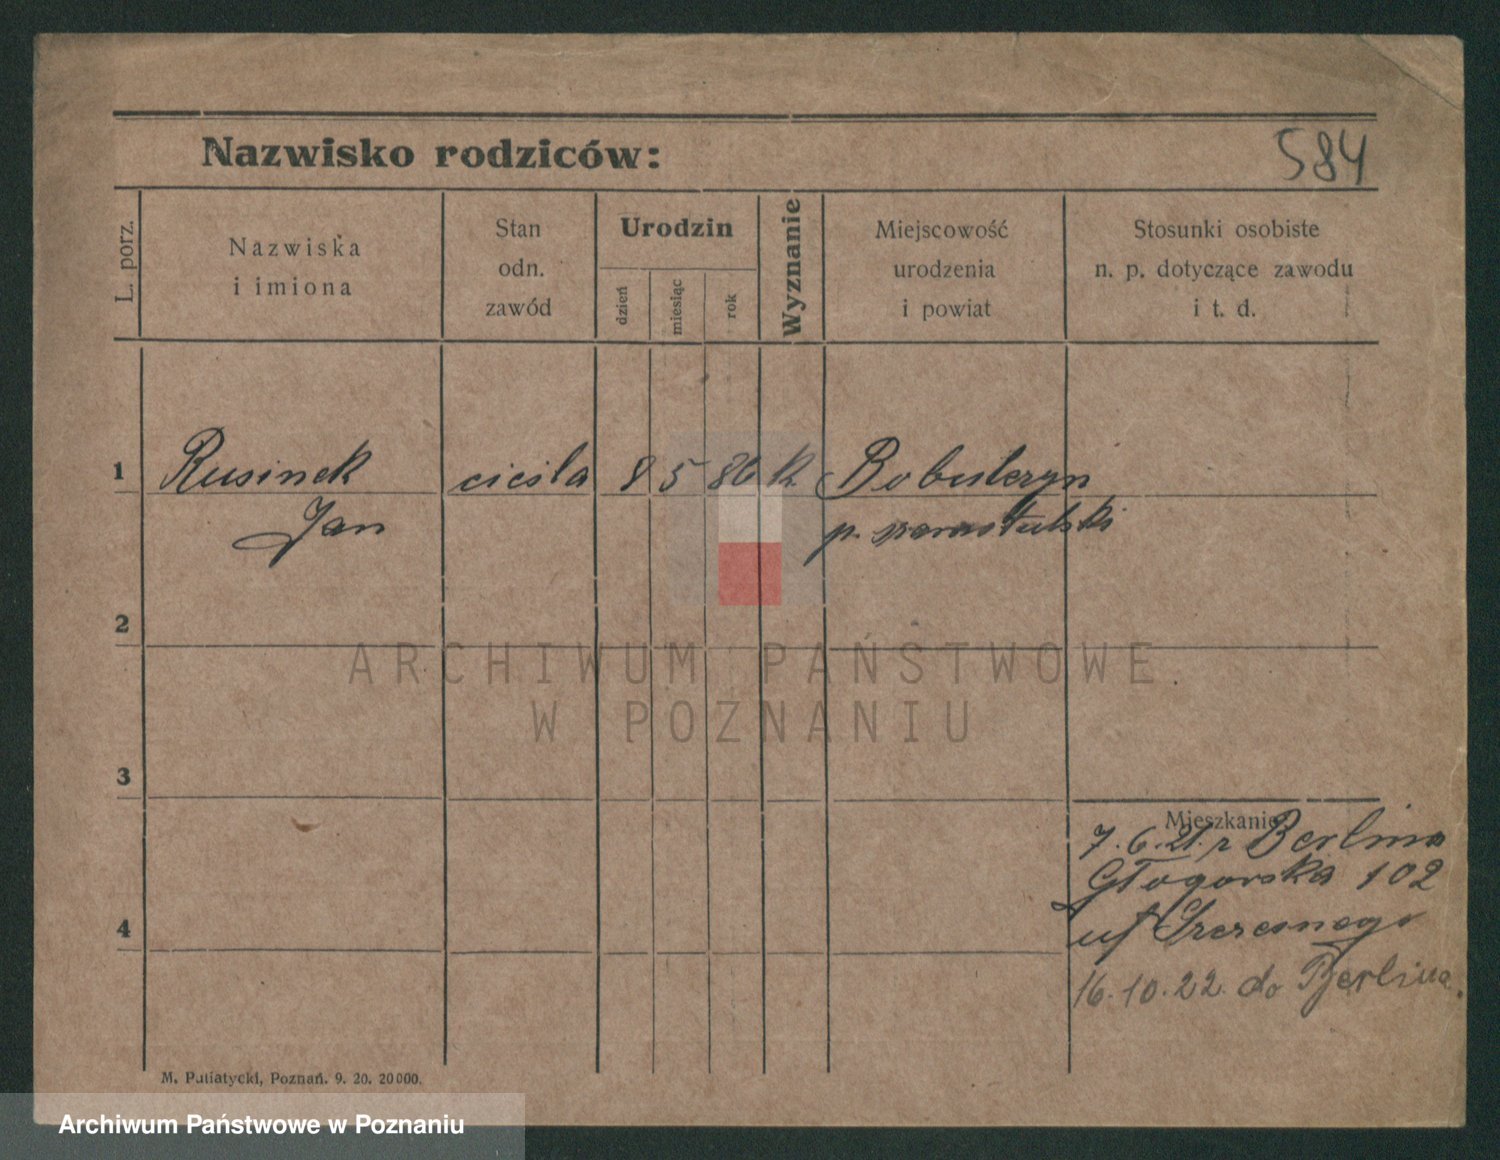 Nazwisko rodziców:
584
L. porz.
Nazwiska
i imiona
Stan
odn.
zawód
Urodzin
dzień
miesiąc
rok
Wyznanie
Miejscowość
urodzenia
i powiat
Stosunki osobiste
n. p. dotyczące zawodu
i t. d.
1
Rusinek
cieśla
8
5
86
k
Bobulczyn
Jan
p. szamotulski
2
ARCHIWUM PAŃSTWOWE
W POZNANIU
3
Mieszkanie
7.6.21. z Berlina
Głogowska 102
4
16.10.22. do Berlina.
M. Putiatycki, Poznań. 9. 20. 20000.
Archiwum Państwowe w Poznaniu